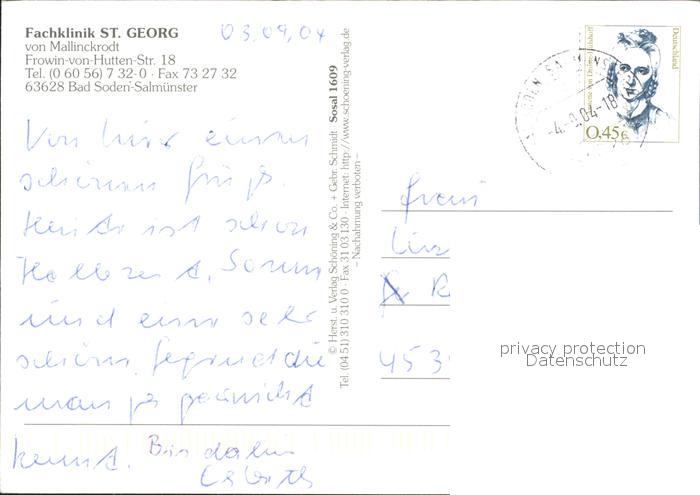 Fachklinik ST. GEORG
von Mallinckrodt
Frowin-von-Hutten-Str. 18
Tel. (0 60 56) 7 32-0 · Fax 73 27 32
63628 Bad Soden-Salmünster
03.09.04
Von hier einen
schönen Gruß.
Heute ist schon
Halbzeit. Sonne
und eine sehr
schöne Gegend die
man ja
kennst. Bis dahin
© Herst. u. Verlag Schöning & Co. + Gebr. Schmidt · Sosal 1609
Tel. (04 51) 310 310 0 · Fax 31 03 130 · Internet: http://www.schoening-verlag.de
– Nachahmung verboten –
Deutschland
0,45€
-4.-9.04-18
Frau
453
privacy protection
Datenschutz